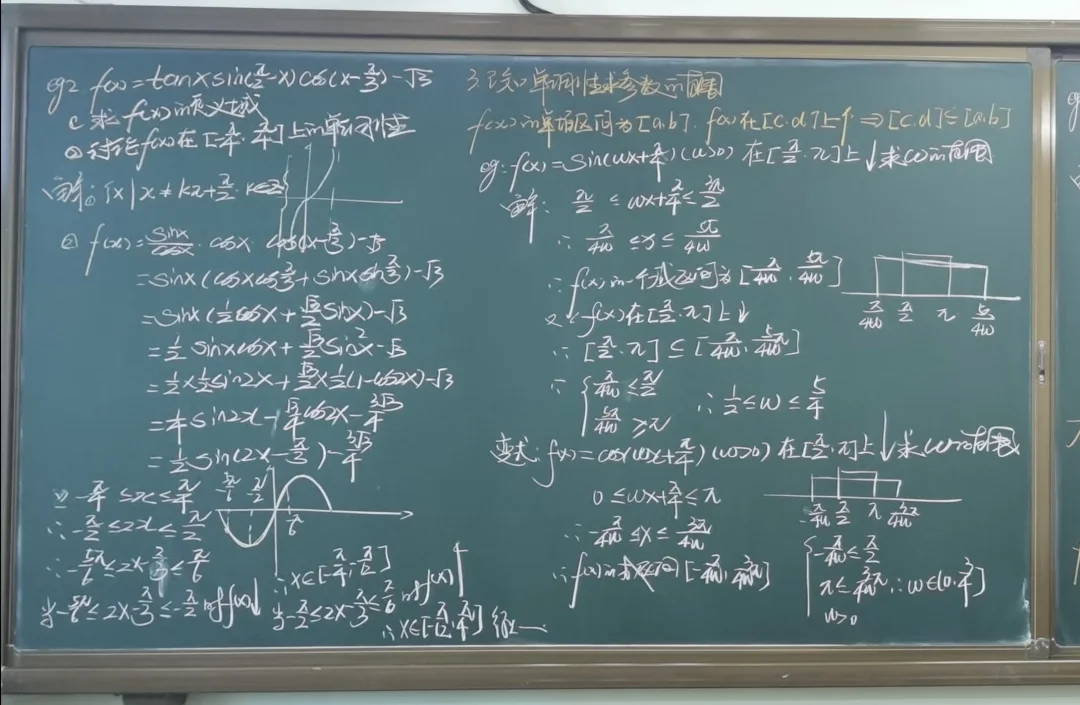 eg2 f(x)=tanx sin(π/2-x) cos(x-π/3)-√3
① 求f(x)的定义域
② 讨论f(x)在[-π/4,π/4]上的单调性
解:① {x|x≠kπ+π/2, k∈Z}
② f(x)=sinx/cosx·cosx·cos(x-π/3)-√3
=sinx(cosxcosπ/3+sinxsinπ/3)-√3
=sinx(1/2cosx+√3/2sinx)-√3
=1/2sinxcosx+√3/2sin²x-√3
=1/2×1/2sin2x+√3/2×1/2(1-cos2x)-√3
=1/4sin2x-√3/4cos2x-3√3/4
=1/2sin(2x-π/3)-3√3/4
∵-π/4≤x≤π/4
∴-π/2≤2x≤π/2
∴-5π/6≤2x-π/3≤π/6
当-5π/6≤2x-π/3≤-π/2时f(x)↓
∴x∈[-π/4,-π/12]
当-π/2≤2x-π/3≤π/6时f(x)↑
∴x∈[-π/12,π/4] 综上
-5π/6 -π/2 π/6
3. 已知单调性求参数的范围
f(x)的单增区间为[a,b], f(x)在[c,d]上↑⇒[c,d]⊆[a,b]
eg: f(x)=sin(ωx+π/4)(ω>0)在[π/2,π]上↓求ω的范围
解: π/2≤ωx+π/4≤3π/2
∴π/4ω≤x≤5π/4ω
∴f(x)的一个减区间为[π/4ω,5π/4ω]
又∵f(x)在[π/2,π]上↓
∴[π/2,π]⊆[π/4ω,5π/4ω]
∴{π/4ω≤π/2
5π/4ω≥π ∴1/2≤ω≤5/4
π/4ω π/2 π 5π/4ω
变式: f(x)=cos(ωx+π/4)(ω>0)在[π/2,π]上↓求ω的范围
0≤ωx+π/4≤π
∴-π/4ω≤x≤3π/4ω
∴f(x)的减区间[-π/4ω,3π/4ω]
-π/4ω π/2 π 3π/4ω
{-π/4ω≤π/2
π≤3π/4ω ∴ω∈(0,3/4]
ω>0